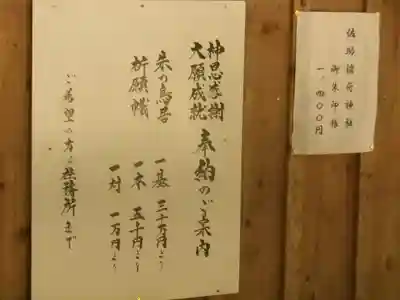 神恩感謝
大願成就
奉納のご案内
朱の鳥居 一基 三十万円より
一本 五十円より
祈願幟 一対 一万円より
ご希望の方は社務所まで
佐助稲荷神社
御朱印帳
一、四〇〇円